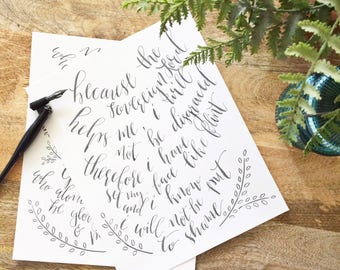 because the
sovereign lord
helps me i will
not be disgraced
therefore i have
set my face like flint
and i know
i will not be put
to shame
who alone